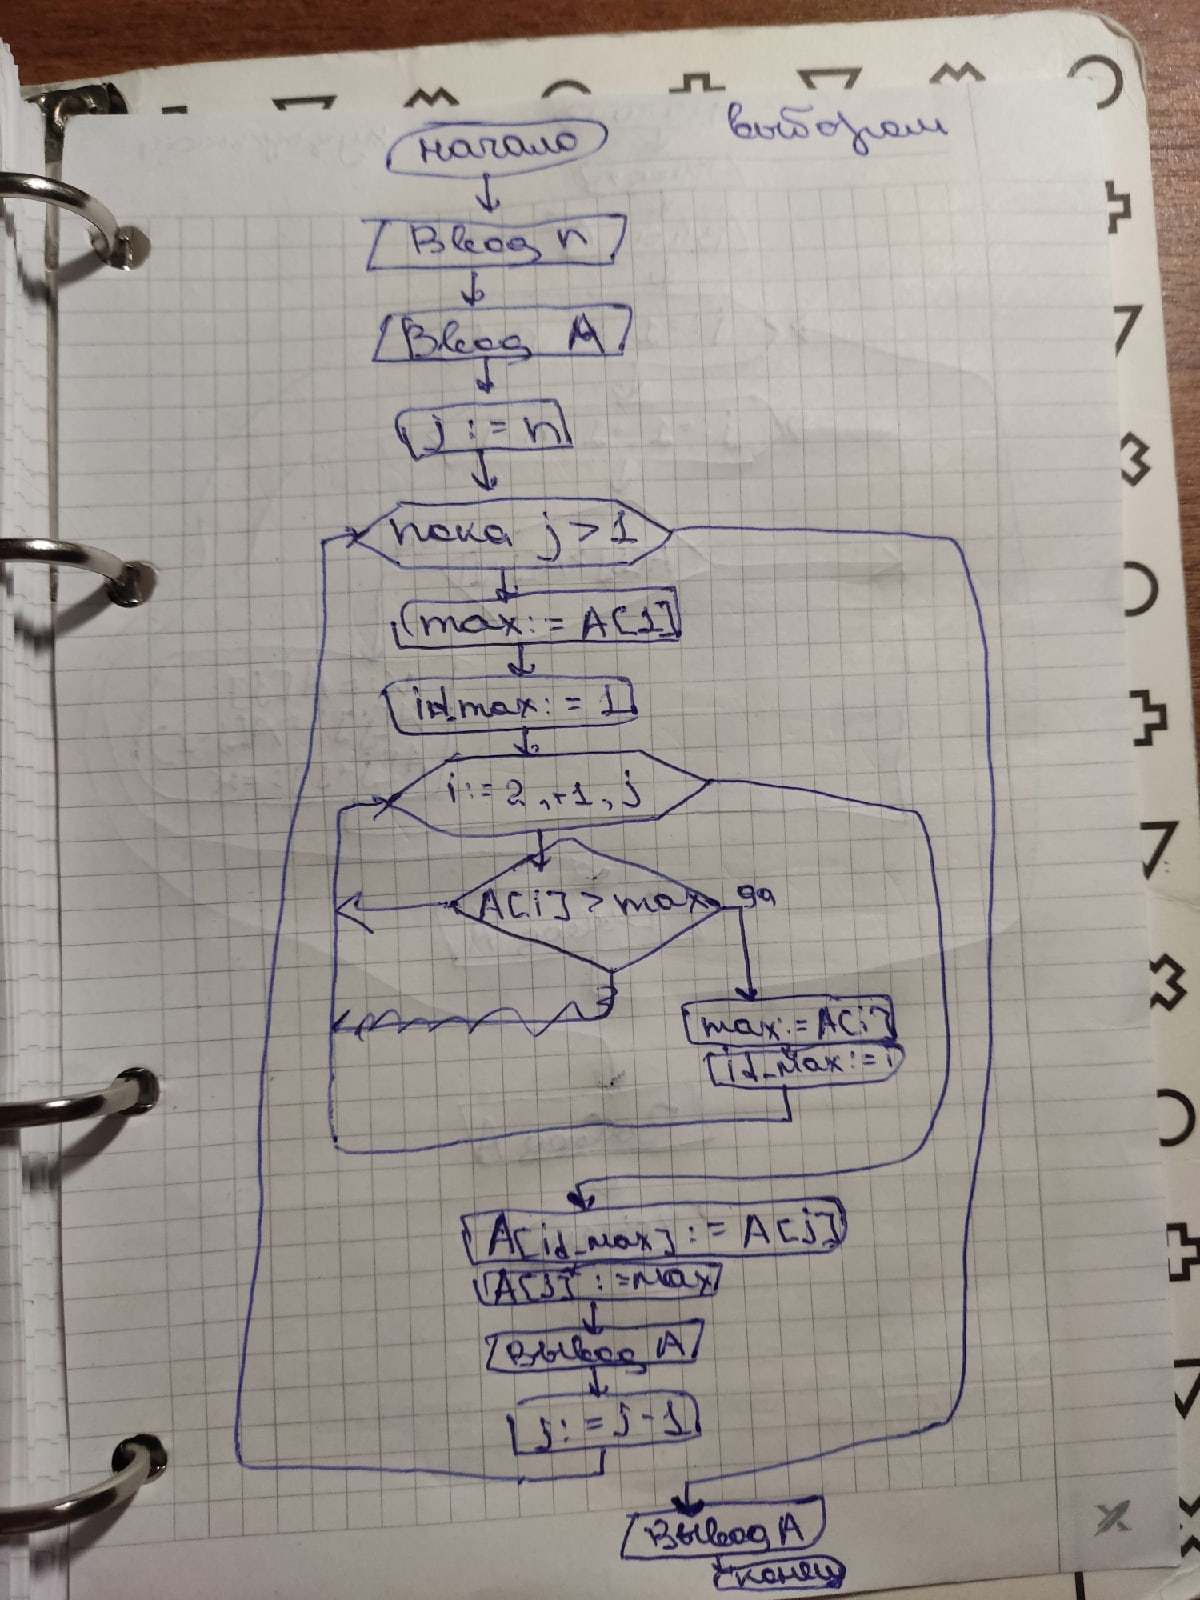 выбором
начало
Ввод n
Ввод A
j := n
пока j > 1
max := A[1]
id_max := 1
i := 2, +1, j
A[i] > max да
max := A[i]
id_max := i
A[id_max] := A[j]
A[j] := max
Вывод A
j := j - 1
Вывод A
конец